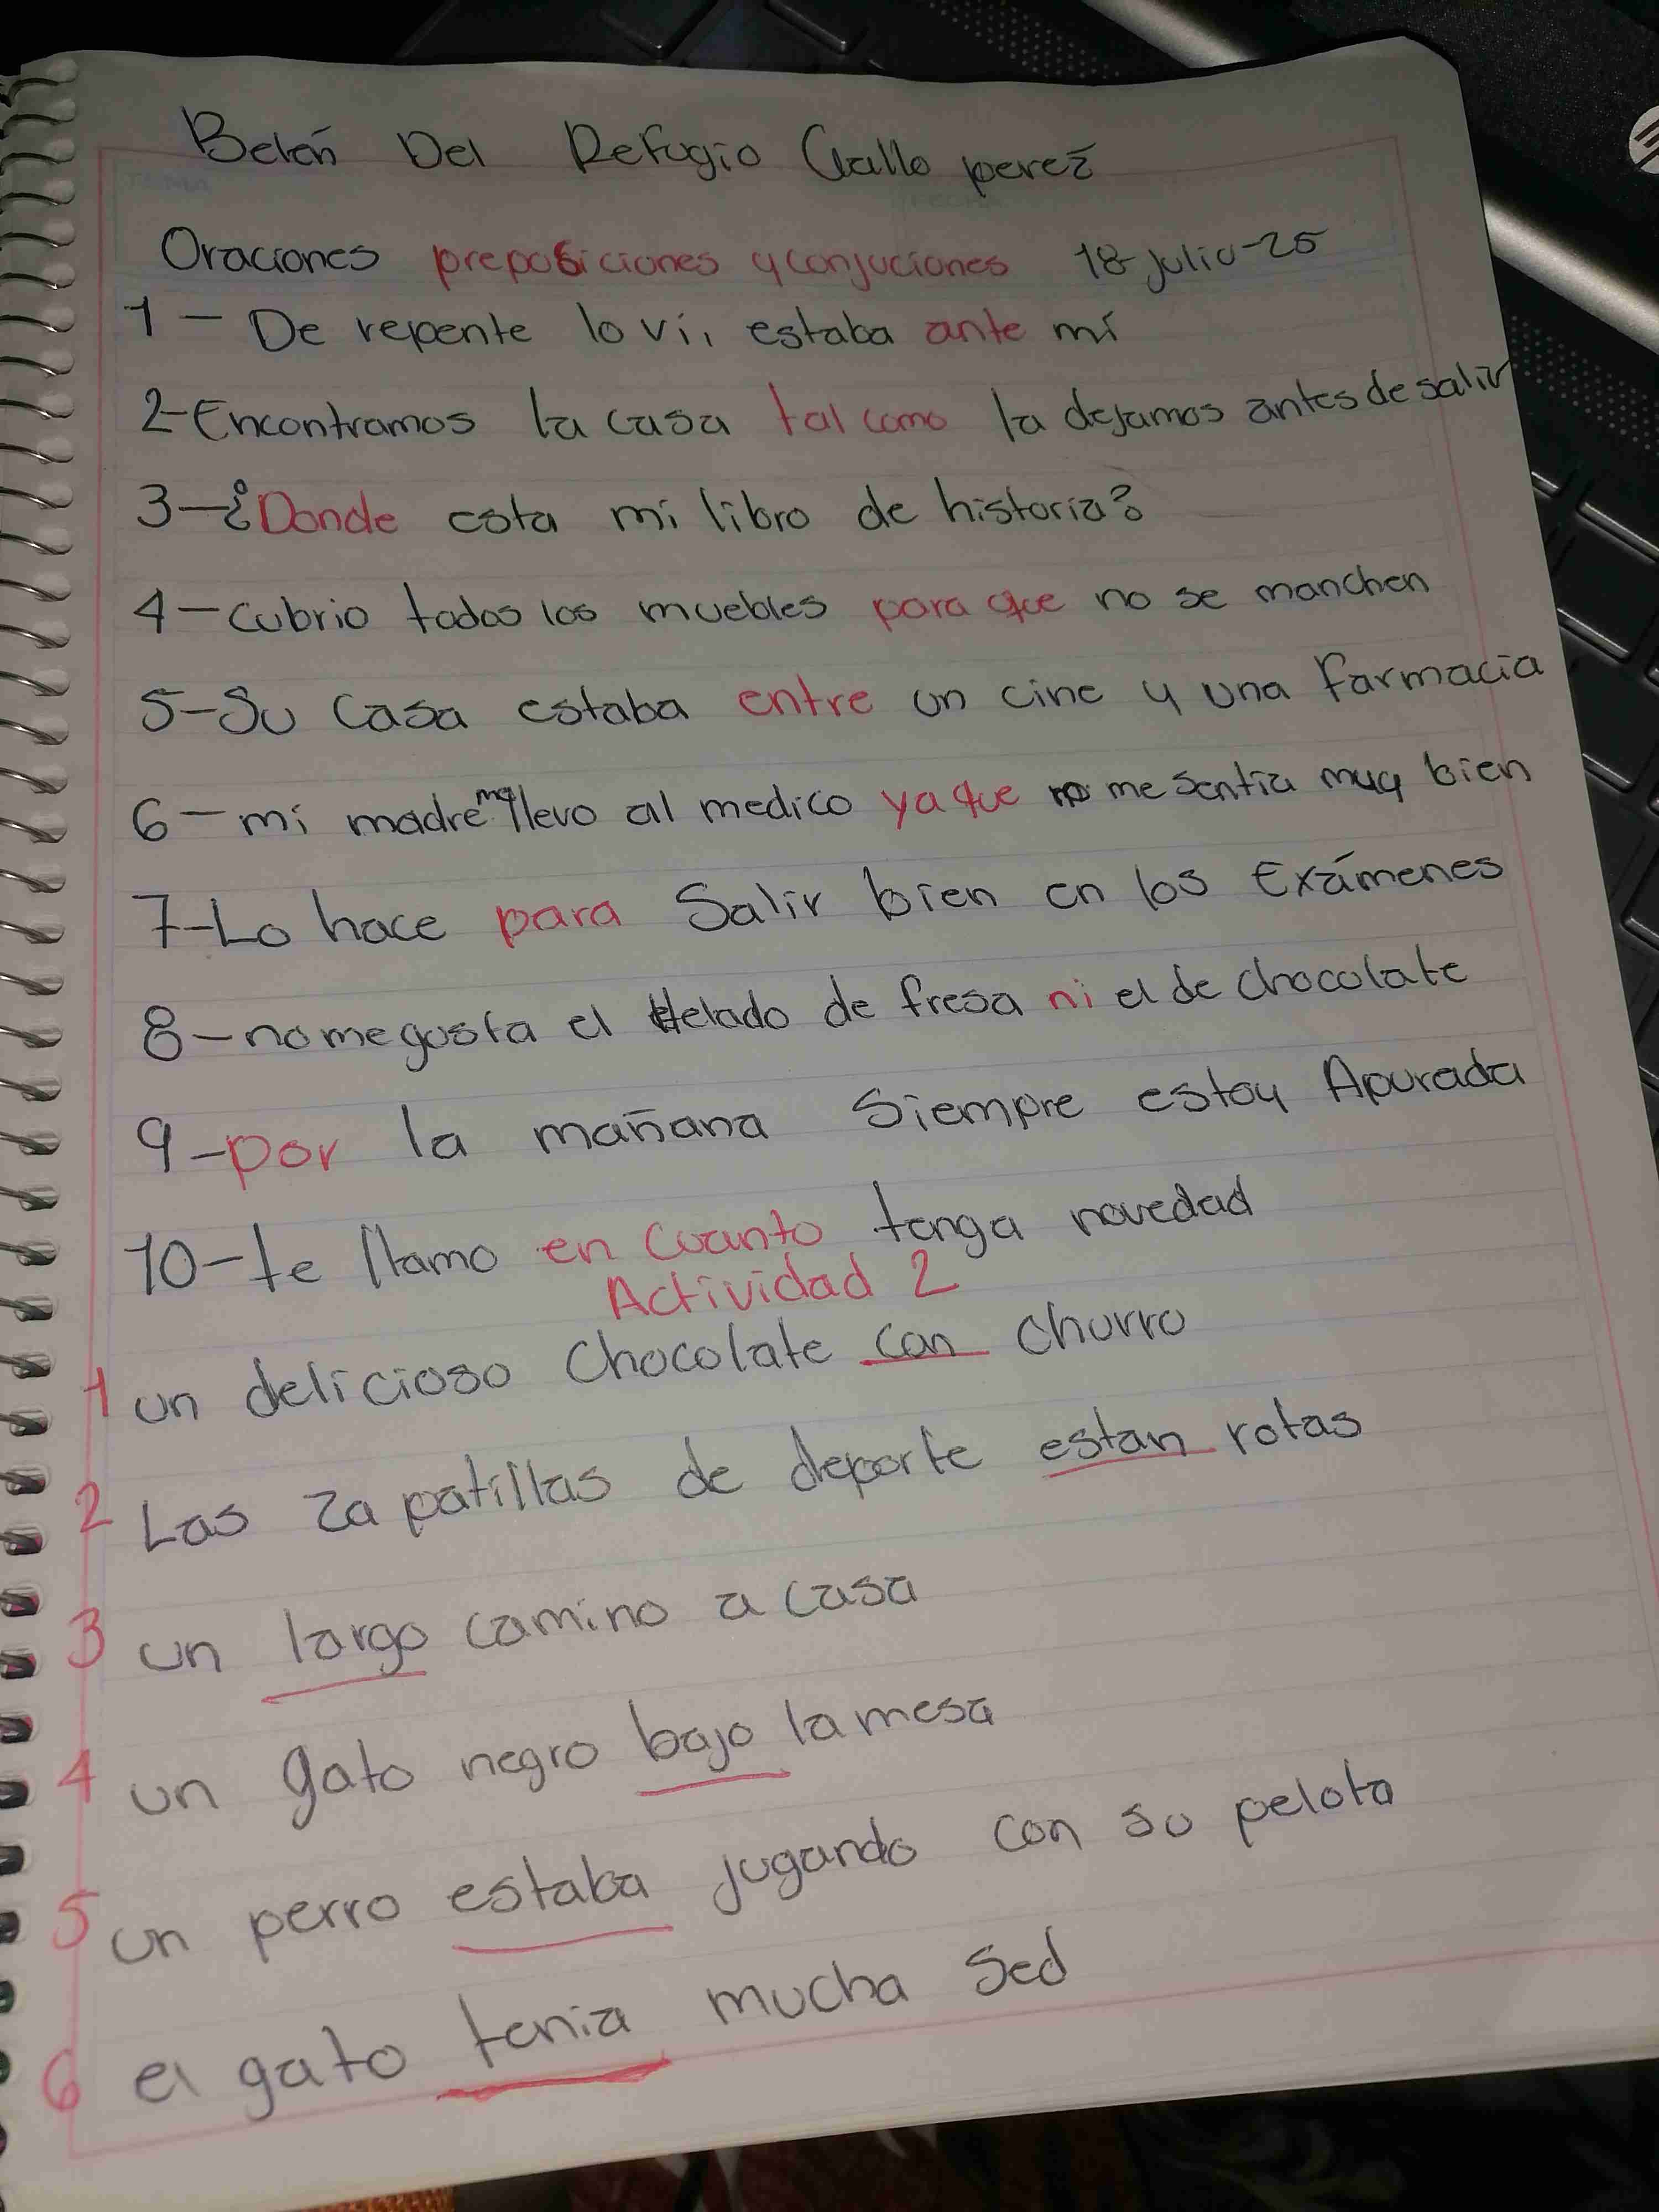 Belén Del Refugio Gallo perez
Oraciones preposiciones y conjuciones 18 julio-25
1- De repente lo vi, estaba ante mí
2-Encontramos la casa tal como la dejamos antes de salir
3-¿Donde esta mi libro de historia?
4-cubrio todos los muebles para que no se manchen
5-Su Casa estaba entre un cine y una farmacia
6-mi madre me llevo al medico ya que no me sentia muy bien
7-Lo hace para Salir bien en los Exámenes
8-no me gusta el Helado de fresa ni el de chocolate
9-por la mañana Siempre estoy Apurada
10-te llamo en Cuanto tenga novedad
Actividad 2
1 un delicioso Chocolate con churro
2 Las zapatillas de deporte estan rotas
3 un largo camino a casa
4 un gato negro bajo la mesa
5 un perro estaba jugando con su pelota
6 el gato tenia mucha Sed